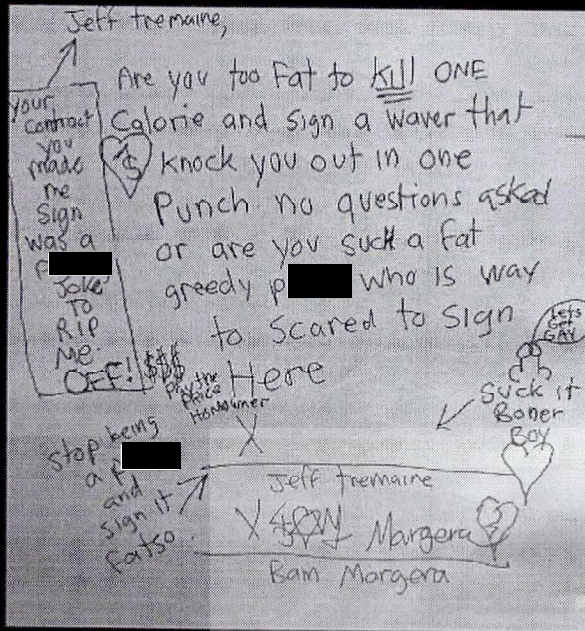 Jeff tremaine,
Are you too Fat to Kill ONE
Calorie and sign a waver that
knock you out in one
Punch no questions asked
or are you such a fat
greedy p who is way
to scared to sign
Here
your
contract
you
made
me
sign
was a
F
Joke
TO
RIP
ME
OFF!
$
$$$
pay the
price
Homowner
Lets
Get
GAY
Suck it
Boner
Boy
stop being
a f
and
sign it
fatso
X
Jeff tremaine
X Margera
Bam Margera